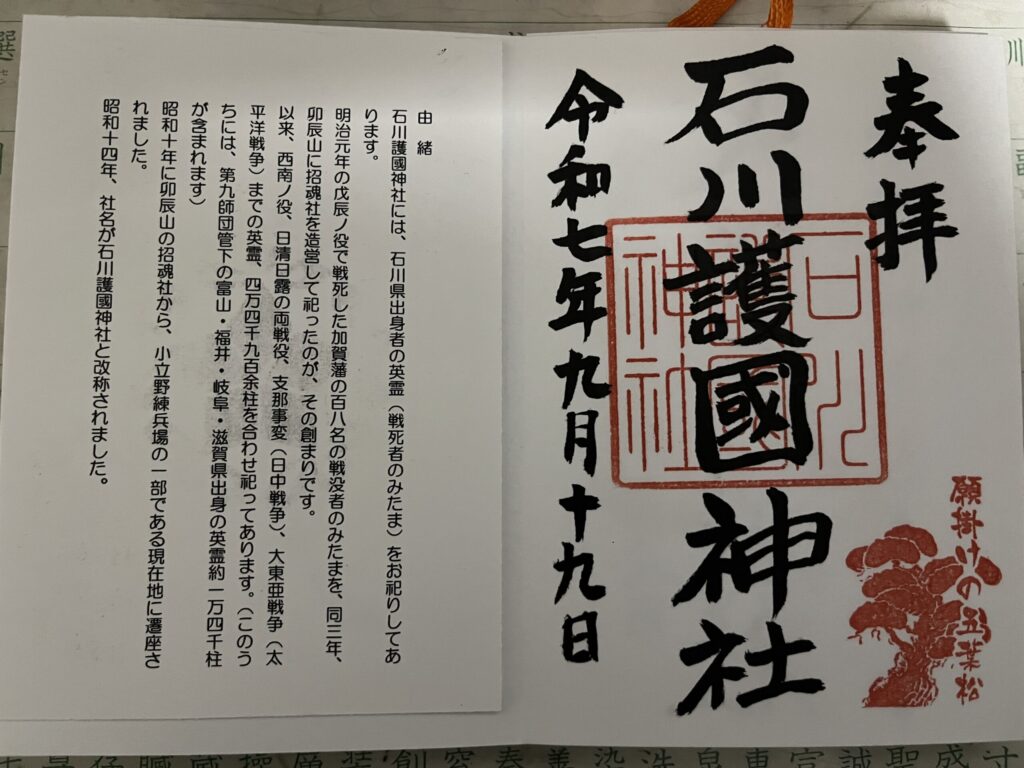 奉拝
石川護國神社
令和七年九月十九日
石川護國神社
願掛けの五葉松
由緒
石川護國神社には、石川県出身者の英霊（戦死者のみたま）をお祀りしてあ
ります。
明治元年の戊辰ノ役で戦死した加賀藩の百八名の戦没者のみたまを、同三年、
卯辰山に招魂社を造営して祀ったのが、その創まりです。
以来、西南ノ役、日清日露の両戦役、支那事変（日中戦争）、大東亜戦争（太
平洋戦争）までの英霊、四万四千九百余柱を合わせ祀ってあります。（このう
ちには、第九師団管下の富山・福井・岐阜・滋賀県出身の英霊約一万四千柱
が含まれます）
昭和十年に卯辰山の招魂社から、小立野練兵場の一部である現在地に遷座さ
れました。
昭和十四年、社名が石川護國神社と改称されました。